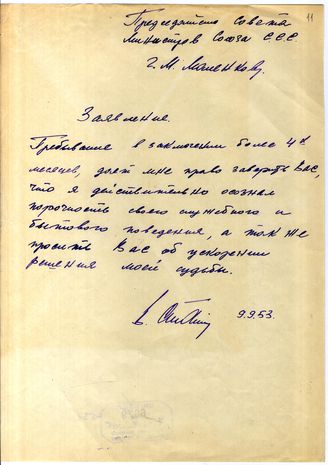 11
Председателю Совета
Министров Союза ССС
Г. М. Маленкову.
Заявление.
Пребывание в заключении более 4х
месяцев, дает мне право заверить Вас,
что я действительно осознал
порочность своего служебного и
бытового поведения, а также
просить Вас об ускорении
решения моей судьбы.
В. 9.9.53.